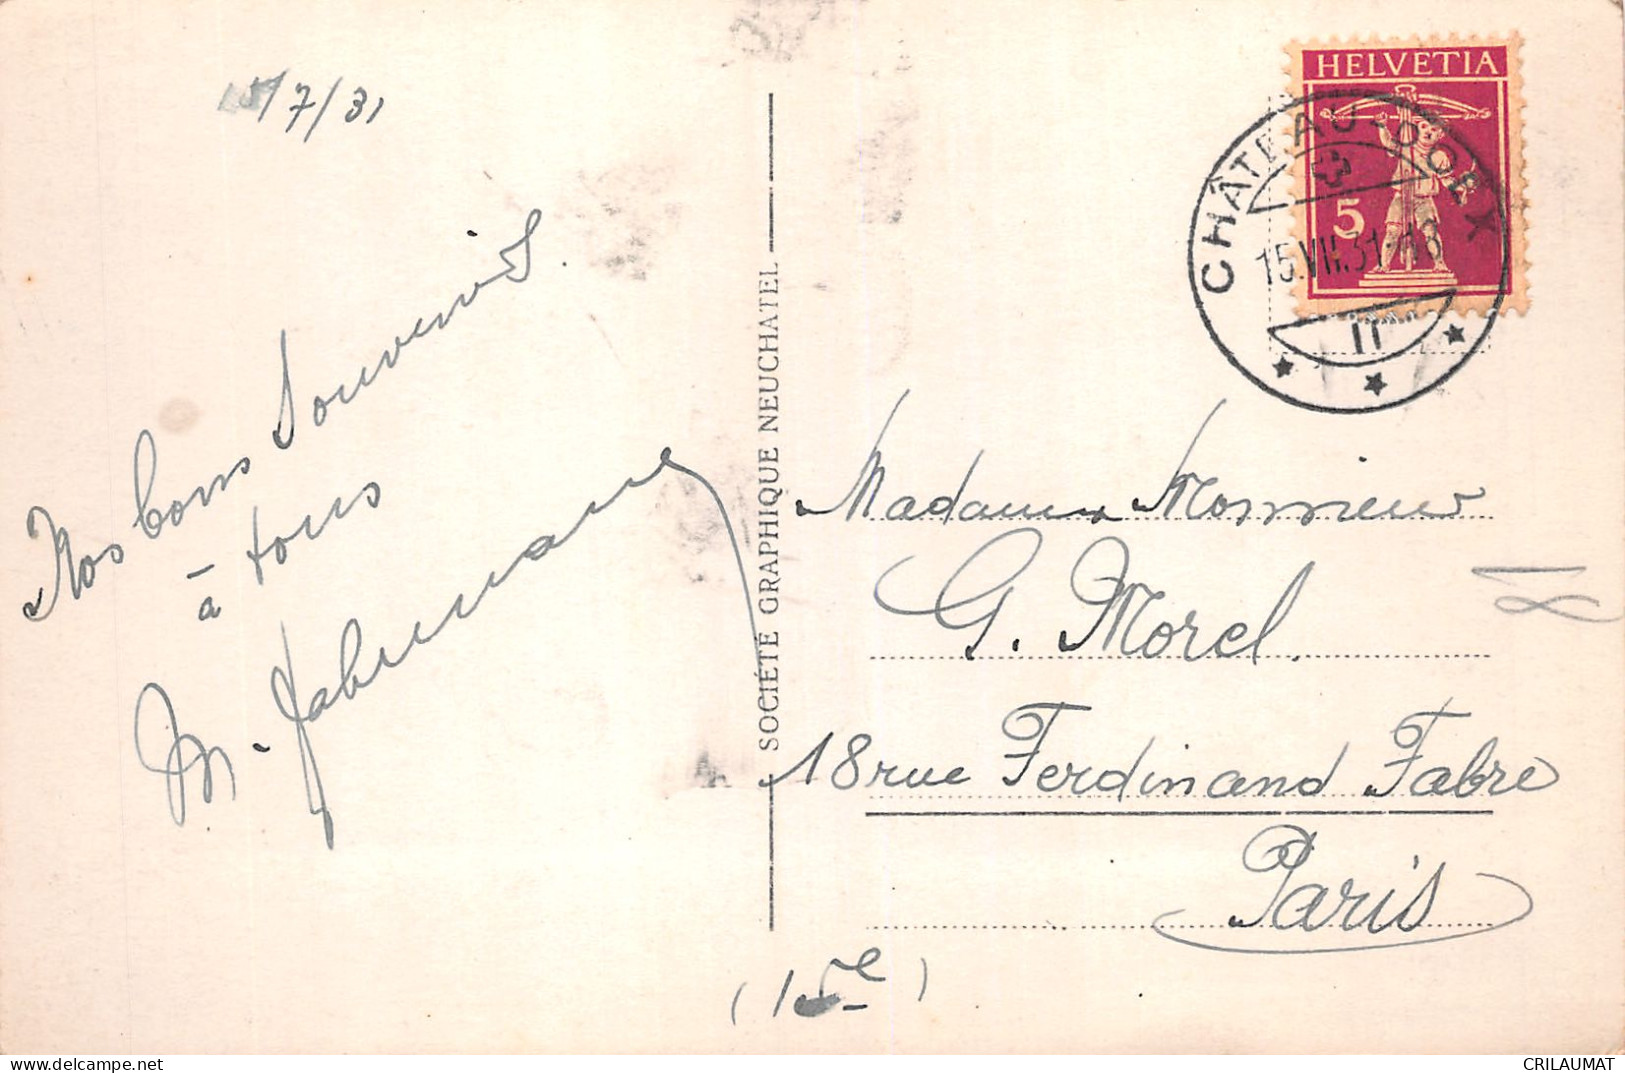 15/7/31
Nos bons Souvenirs
à tous
M.
SOCIÉTÉ GRAPHIQUE NEUCHATEL
HELVETIA
5
CHÂTEAU-D'OEX
15.VII.31-18
II
Madame Monsieur
G. Morel
18 rue Ferdinand Fabre
Paris
(15e)
delcampe.net
CRILAUMAT